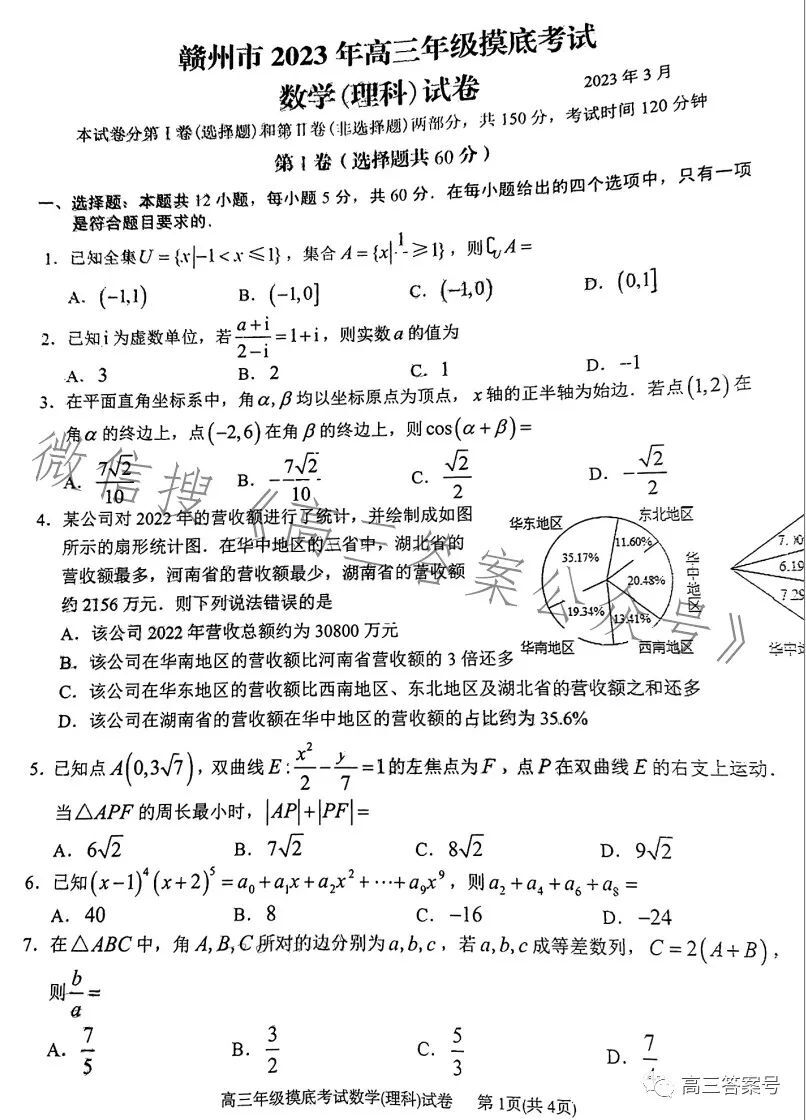 赣州市 2023 年高三年级摸底考试
数学(理科)试卷
2023 年 3 月
本试卷分第 I 卷(选择题)和第 II 卷(非选择题)两部分，共 150 分，考试时间 120 分钟
第 I 卷（选择题共 60 分）
一、选择题：本题共 12 小题，每小题 5 分，共 60 分．在每小题给出的四个选项中，只有一项
是符合题目要求的．
1．已知全集U = {x|-1 < x ⩽ 1}，集合 A = {x| ⩾ 1}，则∁_U A =
A．(-1,1)  B．(-1,0]  C．(-1,0)  D．(0,1]
2．已知 i 为虚数单位，若 (a+i)/(2-i) = 1+i，则实数 a 的值为
A．3  B．2  C．1  D．-1
3．在平面直角坐标系中，角α, β均以坐标原点为顶点，x 轴的正半轴为始边．若点(1,2)在
角α 的终边上，点(-2,6)在角β的终边上，则cos(α+β)=
A．7√2/10  B．-7√2/10  C．√2/2  D．-√2/2
4．某公司对 2022 年的营收额进行了统计，并绘制成如图
所示的扇形统计图．在华中地区的三省中，湖北省的
营收额最多，河南省的营收额最少，湖南省的营收额
约 2156 万元．则下列说法错误的是
A．该公司 2022 年营收总额约为 30800 万元
B．该公司在华南地区的营收额比河南省营收额的 3 倍还多
C．该公司在华东地区的营收额比西南地区、东北地区及湖北省的营收额之和还多
D．该公司在湖南省的营收额在华中地区的营收额的占比约为 35.6%
华东地区
东北地区
35.17%
11.60%
20.48%
19.34%
13.41%
华中地区
华南地区
西南地区
6.19
7.29
5．已知点 A(0,3√7)，双曲线 E: x²/2 - y/7 = 1 的左焦点为 F，点 P 在双曲线 E 的右支上运动．
当△APF 的周长最小时，|AP|+|PF|=
A．6√2  B．7√2  C．8√2  D．9√2
6．已知(x-1)⁴(x+2)⁵ = a₀+a₁x+a₂x²+⋯+a₉x⁹，则a₂+a₄+a₆+a₈ =
A．40  B．8  C．-16  D．-24
7．在△ABC 中，角 A, B, C 所对的边分别为 a, b, c，若 a, b, c 成等差数列，C = 2(A+B)，
则b/a =
A．7/5  B．3/2  C．5/3  D．7
高三年级摸底考试数学(理科)试卷  第 1页(共 4页)
微信搜《高三答案公众号》
高三答案号